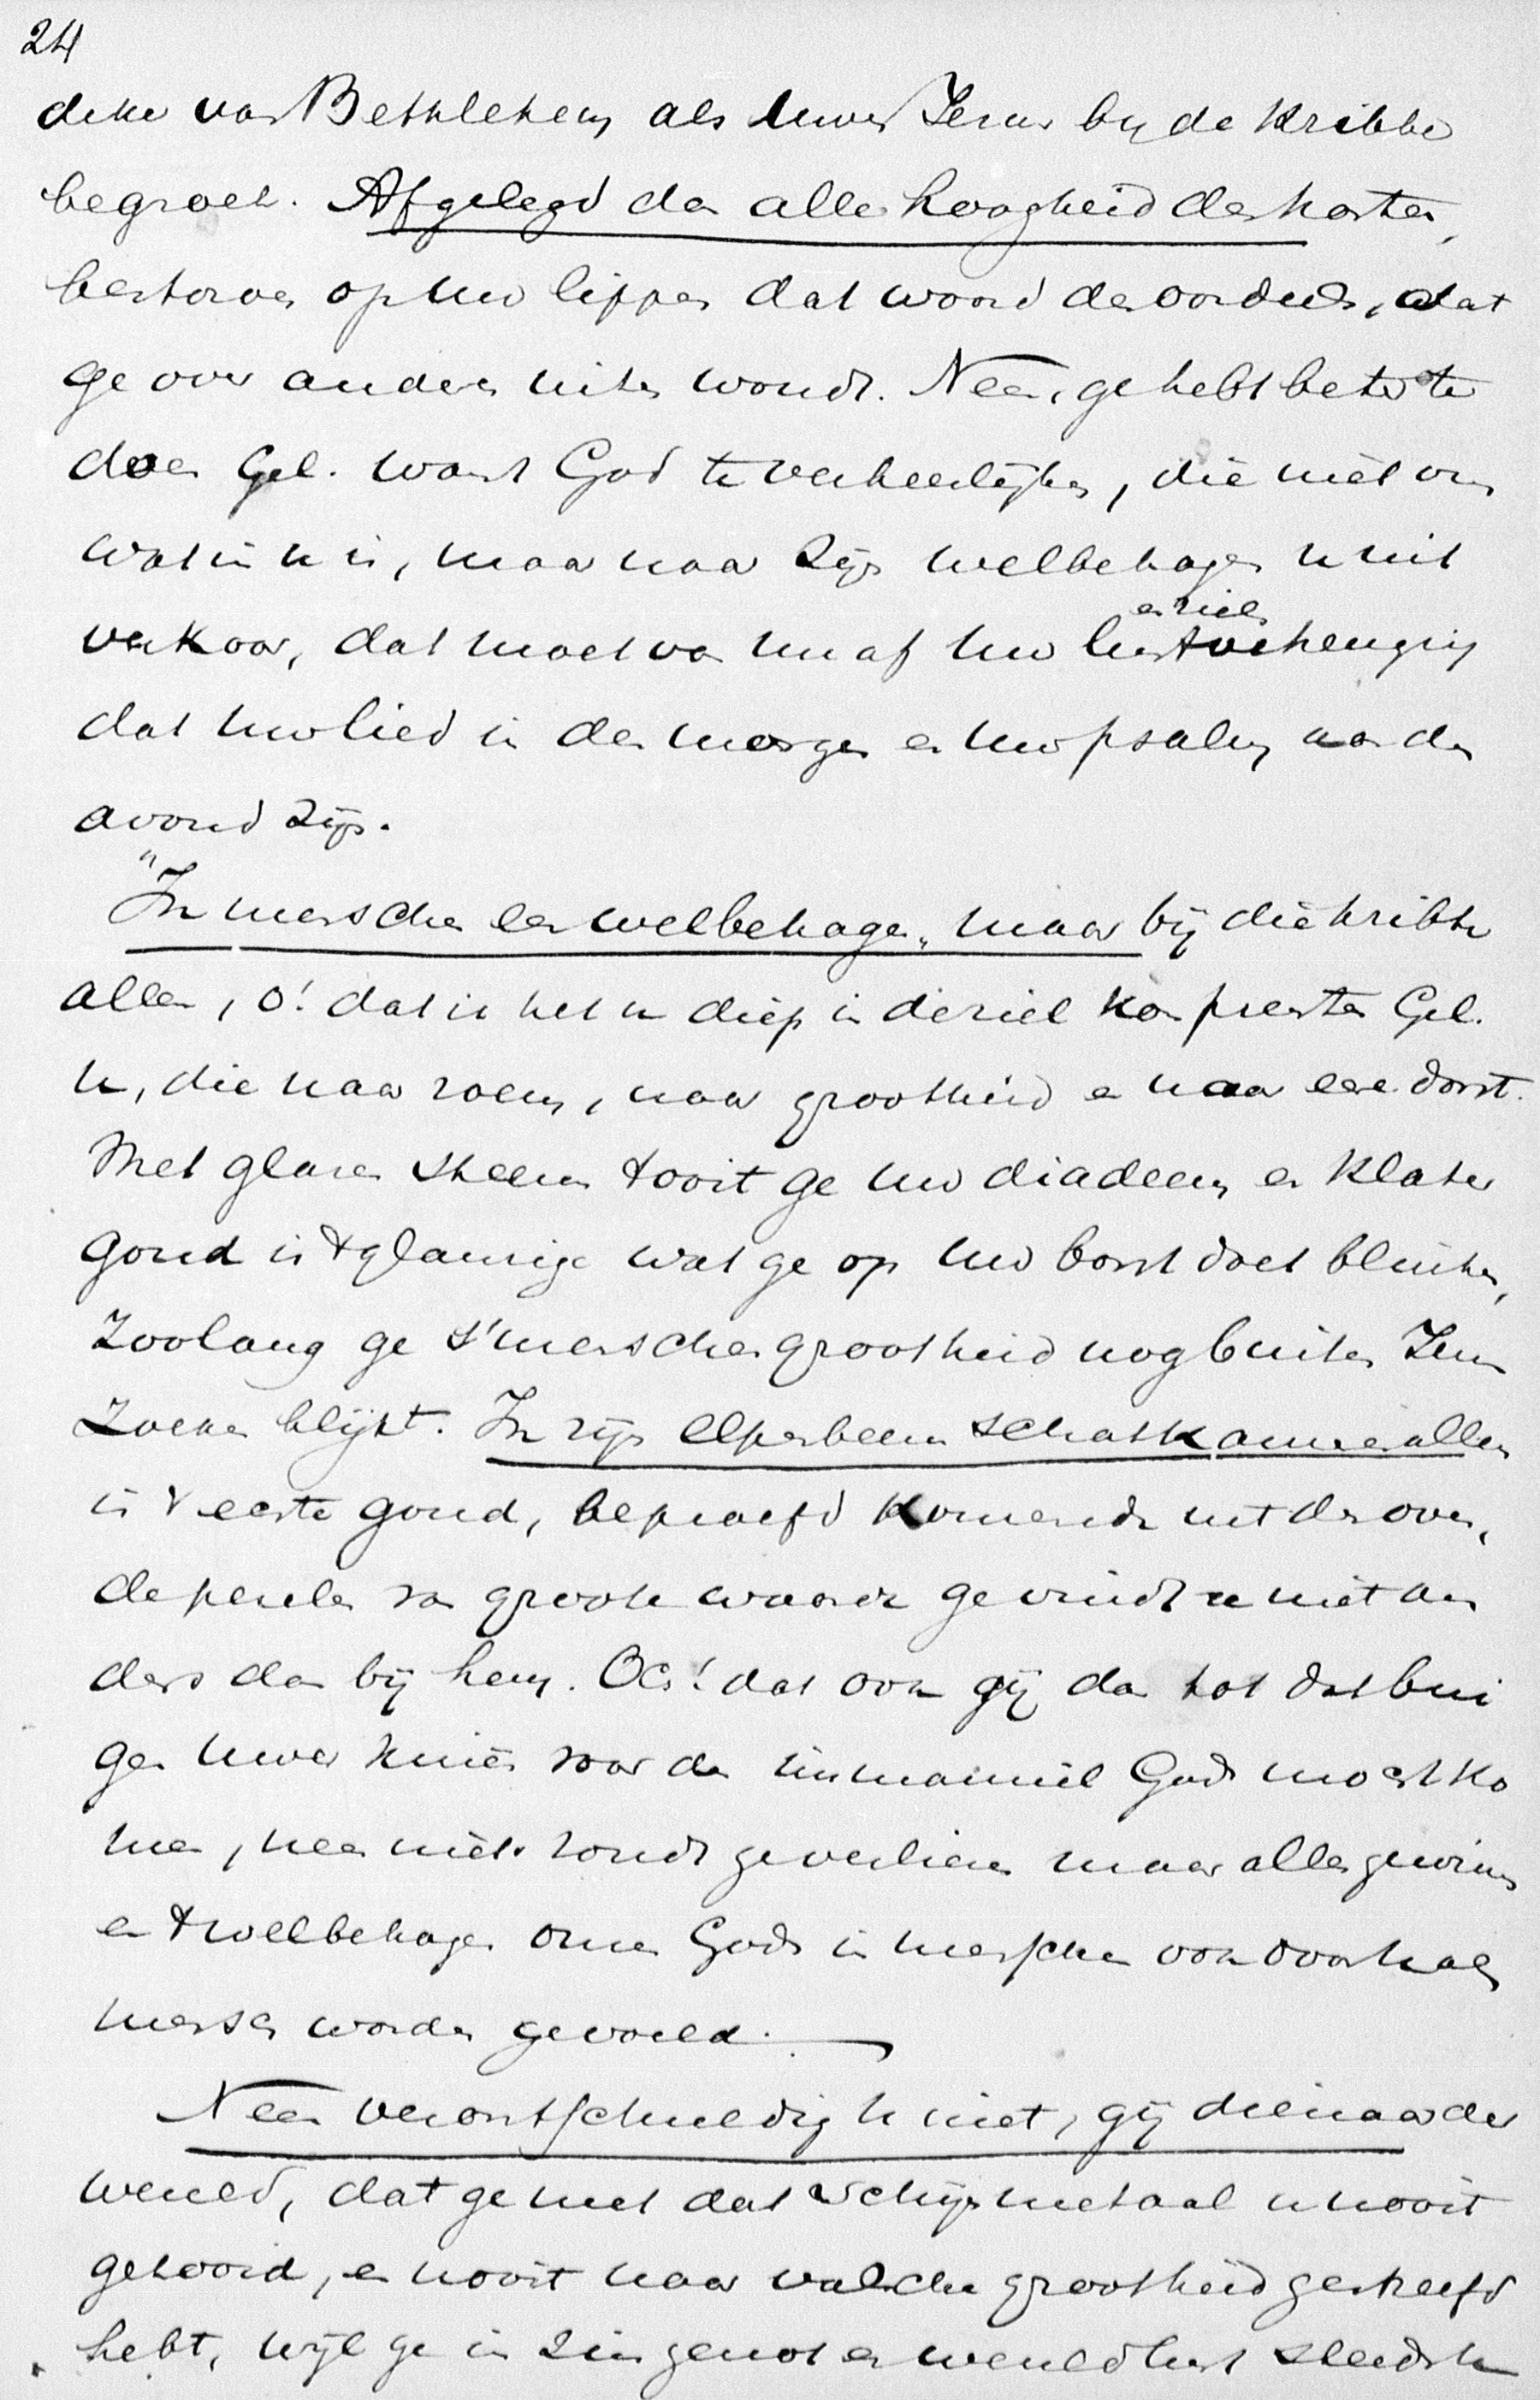 24
deke van Bethlehem als Uwen Jezus bij de Kribbe
begroet. Afgelegd dan alle hoogheid des harten,
bestorven op Uw lippen dat woord des oordeels, dat
ge over anderen uiten woudt. Neen, ge hebt beter te
doen Gel. want God te verheerlijken, die niet om
wat in u is, maar naar Zijn welbehagen u uit
verkoor, dat moet van nu af Uw lust en ziels verheuging
dat Uw lied in den morgen en Uw psalm aan den
avond zijn.
"In menschen een welbehagen" maar bij die kribbe
alleen, o! dat ik het u diep in de ziel kon prenten Gel.
u, die naar roem, naar grootheid en naar eere dorst.
Met glazen steenen tooit ge Uw diadeem en klater
goud is 't glansrige wat ge op Uw borst doet blinken,
Zoolang ge s'menschen grootheid nog buiten Jezus
Zoeken blijft. In zijn elpenbeenen schatkamer alleen
is 't echte goud, beproefd komende uit den oven,
de peerlen van groote waarde ge vindt ze niet an
ders dan bij hem. Och! dat ook gij dan tot dat bui
gen Uwer knieën voor den immanuël Gods mocht ko
men, neen niets zoudt ge verliezen maar alles gewinnen
en 't welbehagen onzes Gods in menschen ook door U als
mensch worden gevoeld.
Neen verontschuldig U niet, gij dienaar der
wereld, dat ge met dat schijnmetaal u nooit
getooid, en nooit naar valsche grootheid gestreefd
hebt, wijl ge in zingenot en wereldlust steeds u